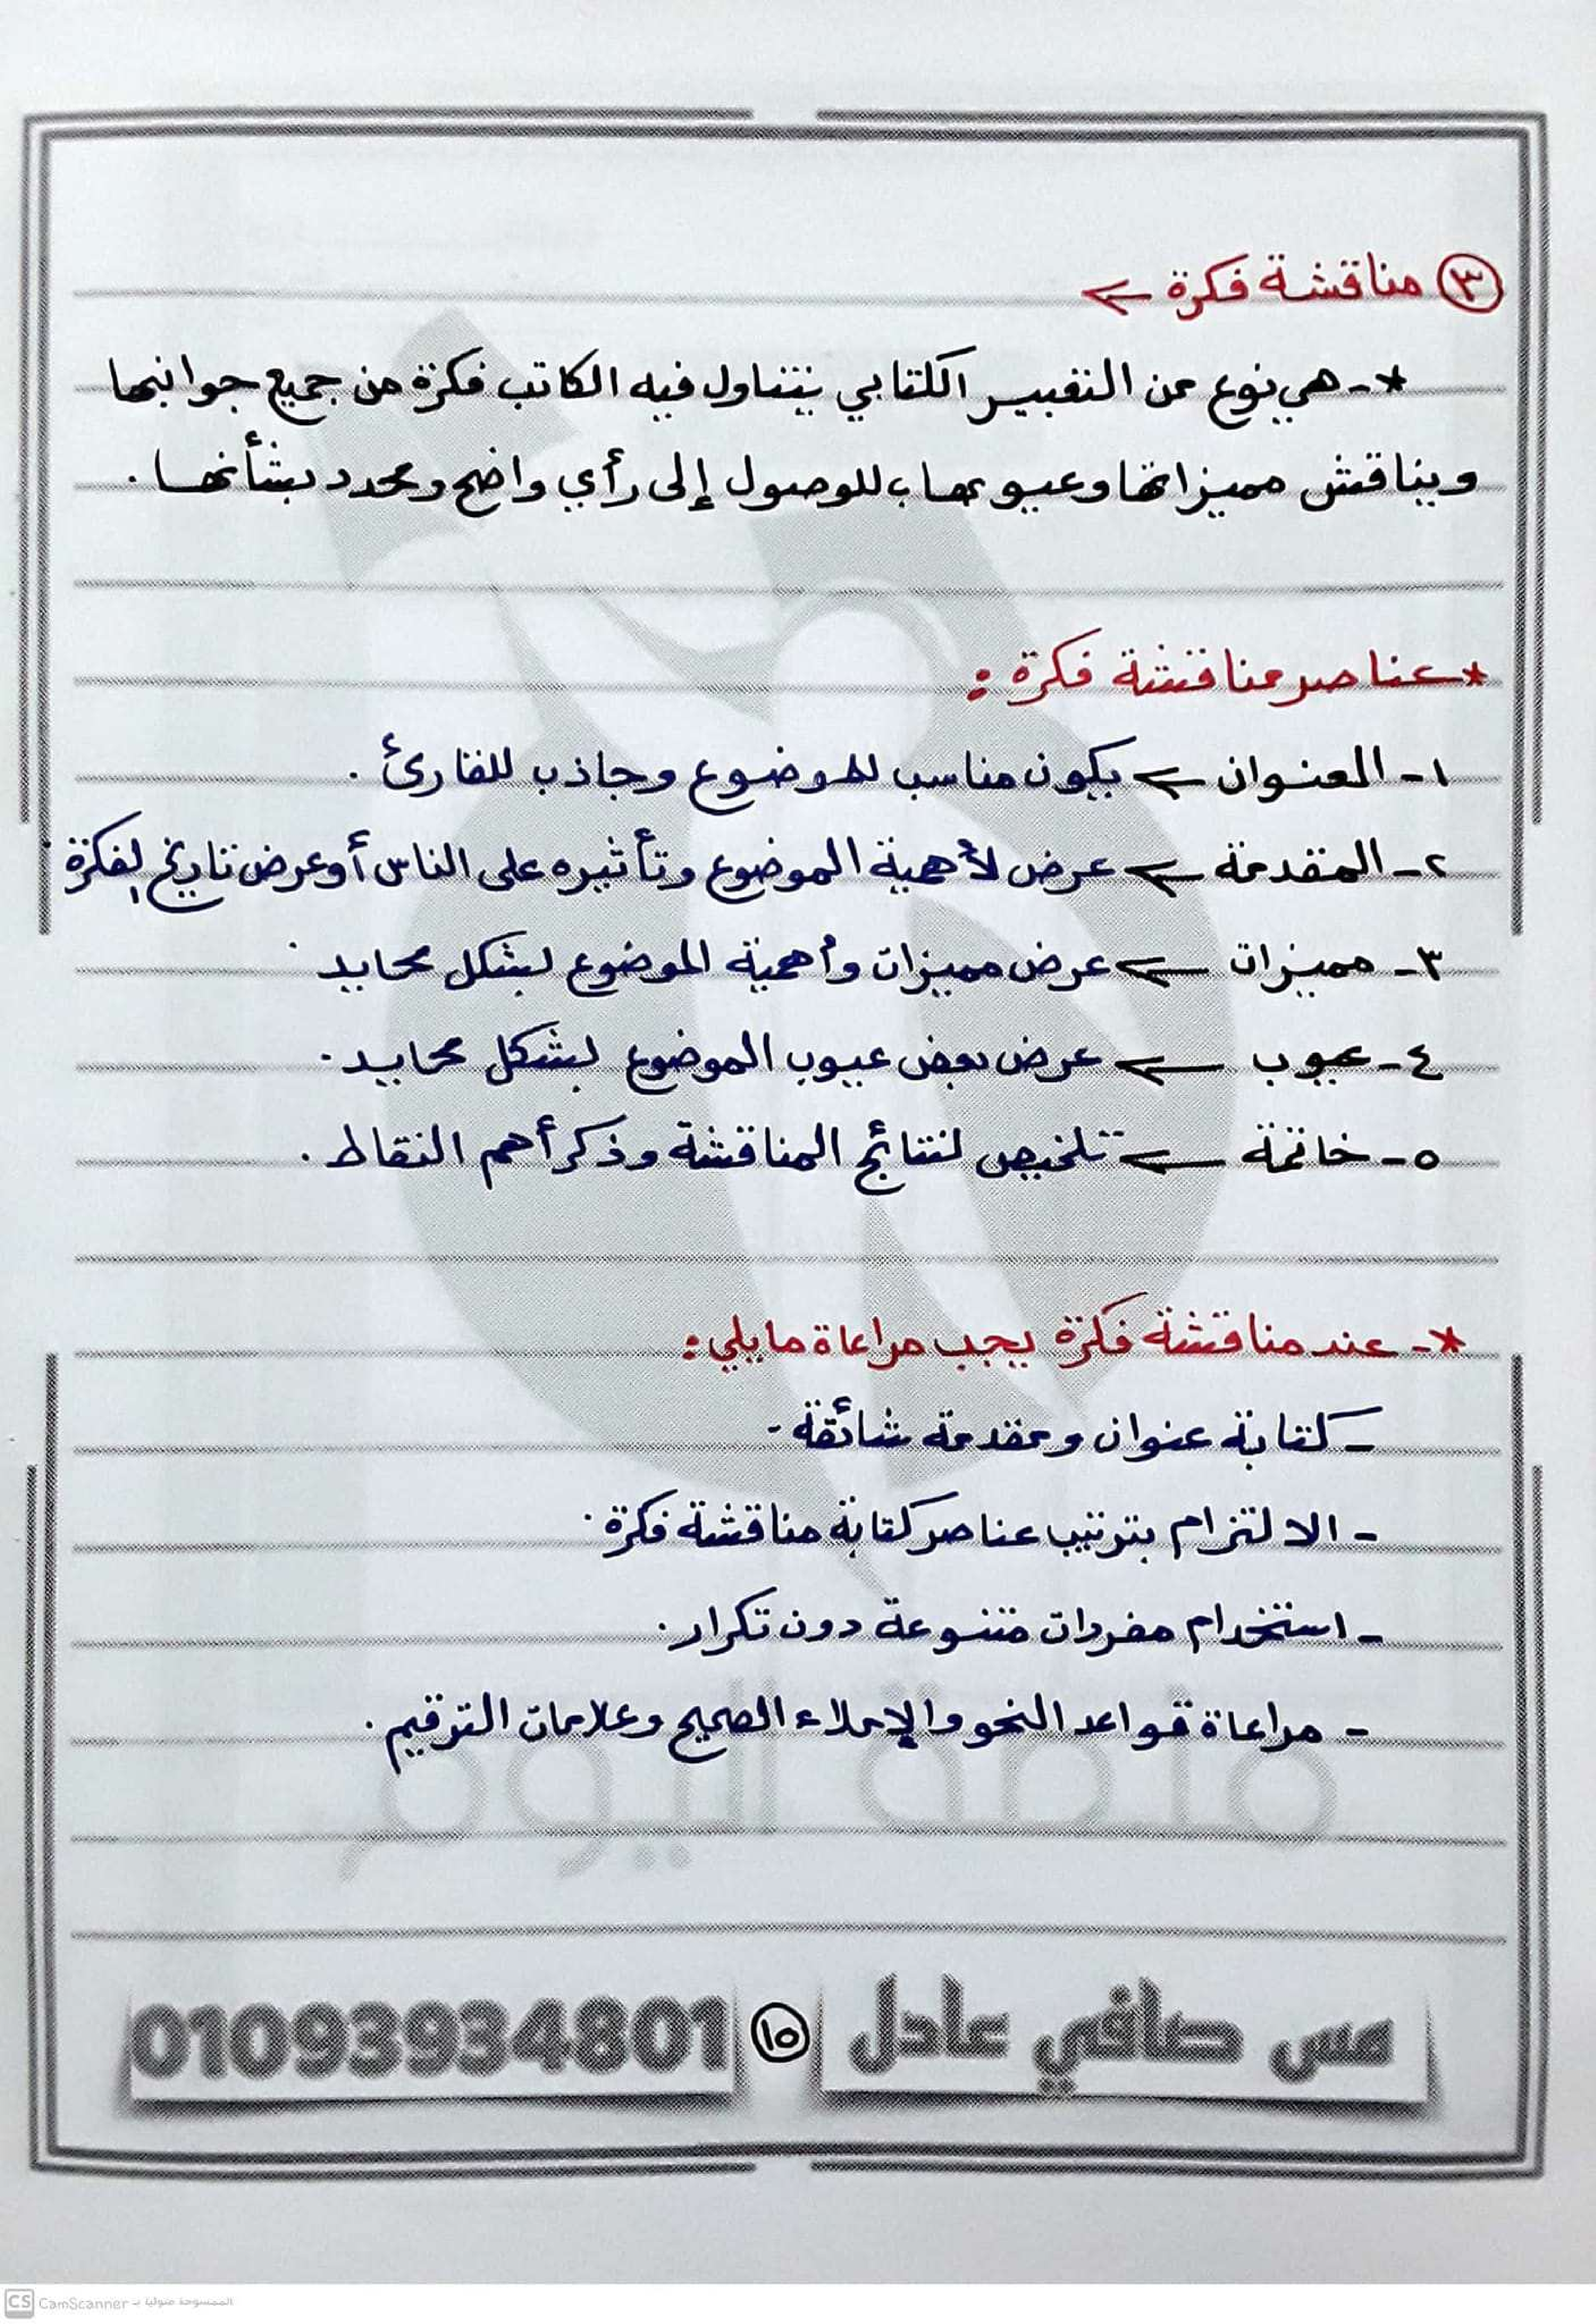 ٣ مناقشة فكرة ←
*- هي نوع من التعبير الكتابي يتناول فيه الكاتب فكرة من جميع جوانبها
ويناقش مميزاتها وعيوبها، للوصول إلى رأي واضح ومحدد بشأنها.
* عناصر مناقشة فكرة :
١- العنوان ← يكون مناسب للموضوع وجاذب للقارئ.
٢- المقدمة ← عرض لأهمية الموضوع وتأثيره على الناس أو عرض تاريخ لفكرة.
٣- مميزات ← عرض مميزات وأهمية الموضوع بشكل محايد.
٤- عيوب ← عرض بعض عيوب الموضوع بشكل محايد.
٥- خاتمة ← تلخيص لنتائج المناقشة وذكر أهم النقاط.
*- عند مناقشة فكرة يجب مراعاة ما يلي :
- كتابة عنوان ومقدمة شائقة.
- الالتزام بترتيب عناصر كتابة مناقشة فكرة.
- استخدام مفردات متنوعة دون تكرار.
- مراعاة قواعد النحو والإملاء الصحيح وعلامات الترقيم.
منصة اليوم
مس صافي عادل ١٥ 01093934801
CS CamScanner الممسوحة ضوئيا بـ